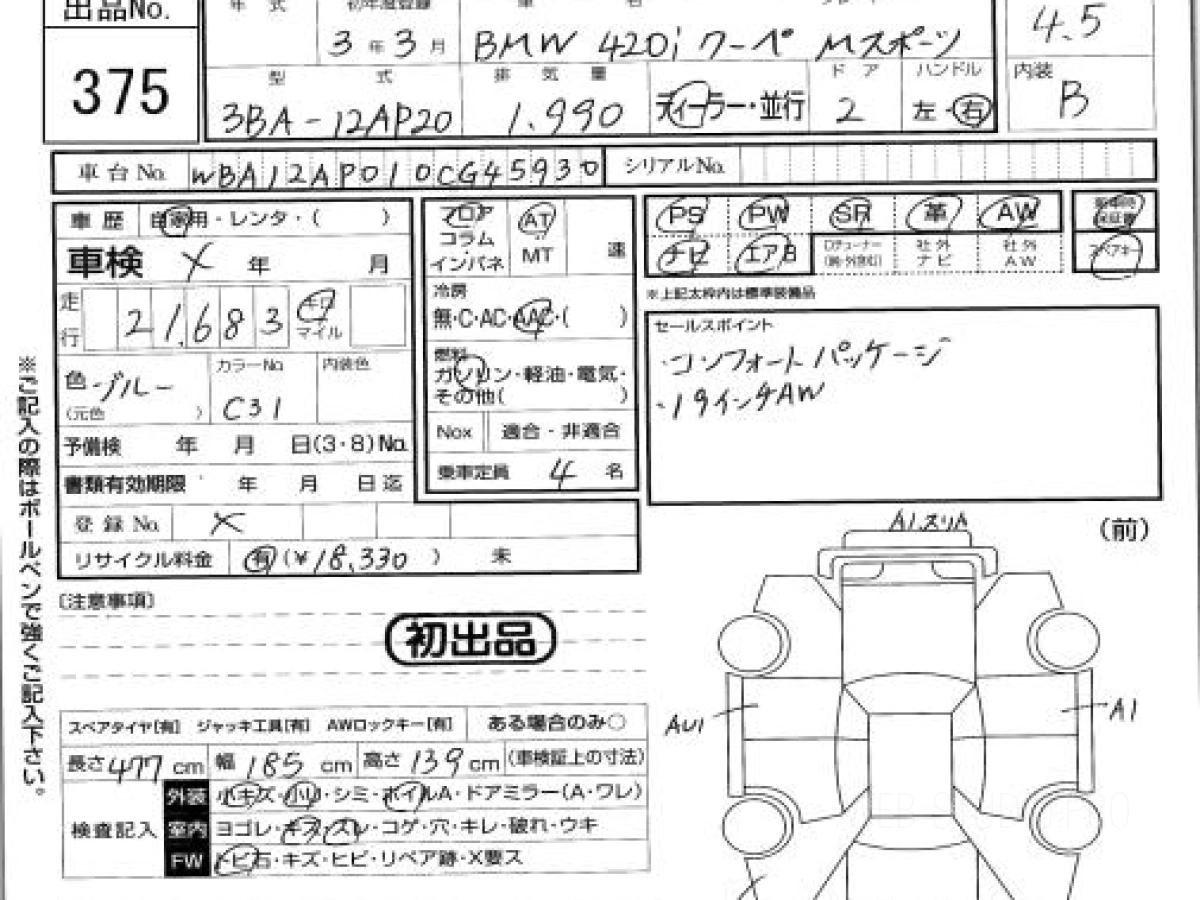 出品No.
375
年 式 初年度登録 車 名
3年3月 BMW 420i クーペ Mスポーツ
4.5
型 式 排 気 量 ド ア ハンドル
3BA-12AP20 1.990 ディーラー・並行 2 左・右
内装 B
車台No. WBA12AP010CG45930 シリアルNo.
車歴 自家用・レンタ・( )
車検 X 年 月
走行 21,683 キロ マイル
色 ブルー (元色 ) カラーNo. C31 内装色
予備検 年 月 日(3・8)No.
書類有効期限 年 月 日迄
登録No. X
リサイクル料金 有(¥18,330 ) 未
フロア コラム インパネ AT MT 速
冷房
無・C・AC・AAC・( )
燃料
ガソリン・軽油・電気・
その他( )
Nox 適合・非適合
乗車定員 4 名
PS PW SR 革 AW
ナビ エアB Dチューナー 社外ナビ 社外AW スペアキー
※上記太枠内は標準装備品
セールスポイント
・コンフォートパッケージ
・19インチAW
※ご記入の際はボールペンで強くご記入下さい。
〔注意事項〕
初出品
A1.スリA
(前)
AU1
A1
スペアタイヤ[有] ジャッキ工具[有] AWロックキー[有] ある場合のみ○
長さ477cm 幅185cm 高さ139cm (車検証上の寸法)
検査記入
外装 小キズ・小U・シミ・ホイルA・ドアミラー(A・ワレ)
室内 ヨゴレ・キズ・スレ・コゲ・穴・キレ・破れ・ウキ
FW トビ石・キズ・ヒビ・リペア跡・X要ス